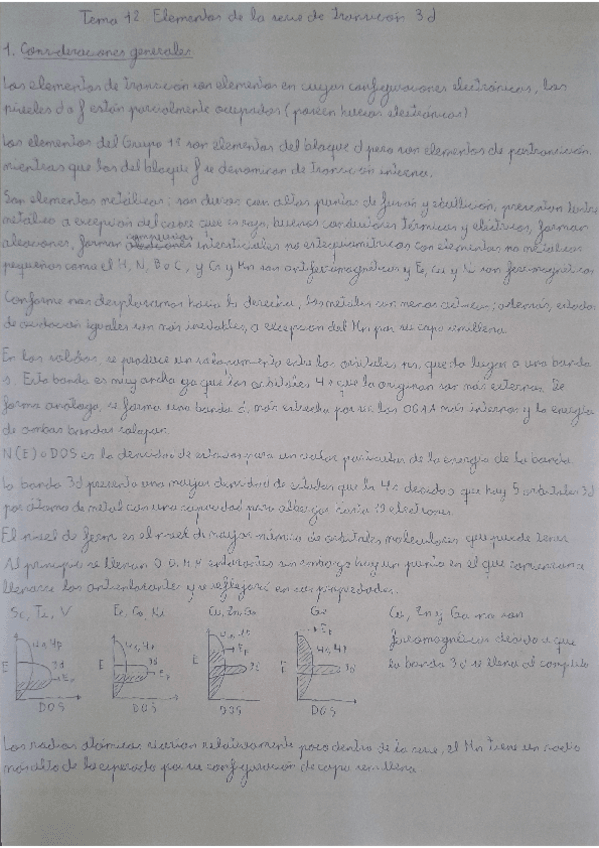 Tema 12. Elementos de la serie de transición 3d
1. Consideraciones generales
Los elementos de transición son elementos en cuyas configuraciones electrónicas, los
niveles d o f están parcialmente ocupados (poseen huecos electrónicos)
Los elementos del Grupo 12 son elementos del bloque d pero son elementos de postransición,
mientras que los del bloque f se denominan de transición interna.
Son elementos metálicos: son duros con altos puntos de fusión y ebullición, presentan lustre
metálico a excepción del cobre que es rojo, buenos conductores térmicos y eléctricos, forman
aleaciones, forman intersticiales no estequiométricos con elementos no metálicos
pequeños como el H, N, B o C, y Cr y Mn son antiferromagnéticos y Fe, Co y Ni son ferromagnéticos
Conforme nos desplazamos hacia la derecha, los metales son menos activos; además, estados
de oxidación iguales son más inestables, a excepción del Mn por su capa semillena.
En los sólidos, se produce un solapamiento entre los orbitales ns, que da lugar a una banda
s. Esta banda es muy ancha ya que los orbitales 4s que la originan son más externos. De
forma análoga, se forma una banda d, más estrecha por ser los OOAA más internos y la energía
de ambas bandas solapan.
N(E) o DOS es la densidad de estados para un valor particular de la energía de la banda.
La banda 3d presenta una mayor densidad de estados que la 4s debido a que hay 5 orbitales 3d
por átomo de metal con una capacidad para albergar hasta 10 electrones.
El nivel de Fermi es el nivel de mayor número de orbitales moleculares que puede tener.
Al principio se llenan OO.MM enlazantes sin embargo hay un punto en el que comienzan a
llenarse los antienlazantes y se reflejará en sus propiedades.
Sc, Ti, V Fe, Co, Ni Cu, Zn, Ga Ge Cu, Zn y Ga no son
ferromagnéticos debido a que
la banda 3d se llena al completo
E 4s, 4p 3d E_F DOS
E 4s, 4p 3d E_F DOS
E 4s, 4p E_F 3d DOS
E E_F 4s, 4p 3d DOS
Los radios atómicos varían relativamente poco dentro de la serie, el Mn tiene un radio
más alto de lo esperado por su configuración de capa semillena